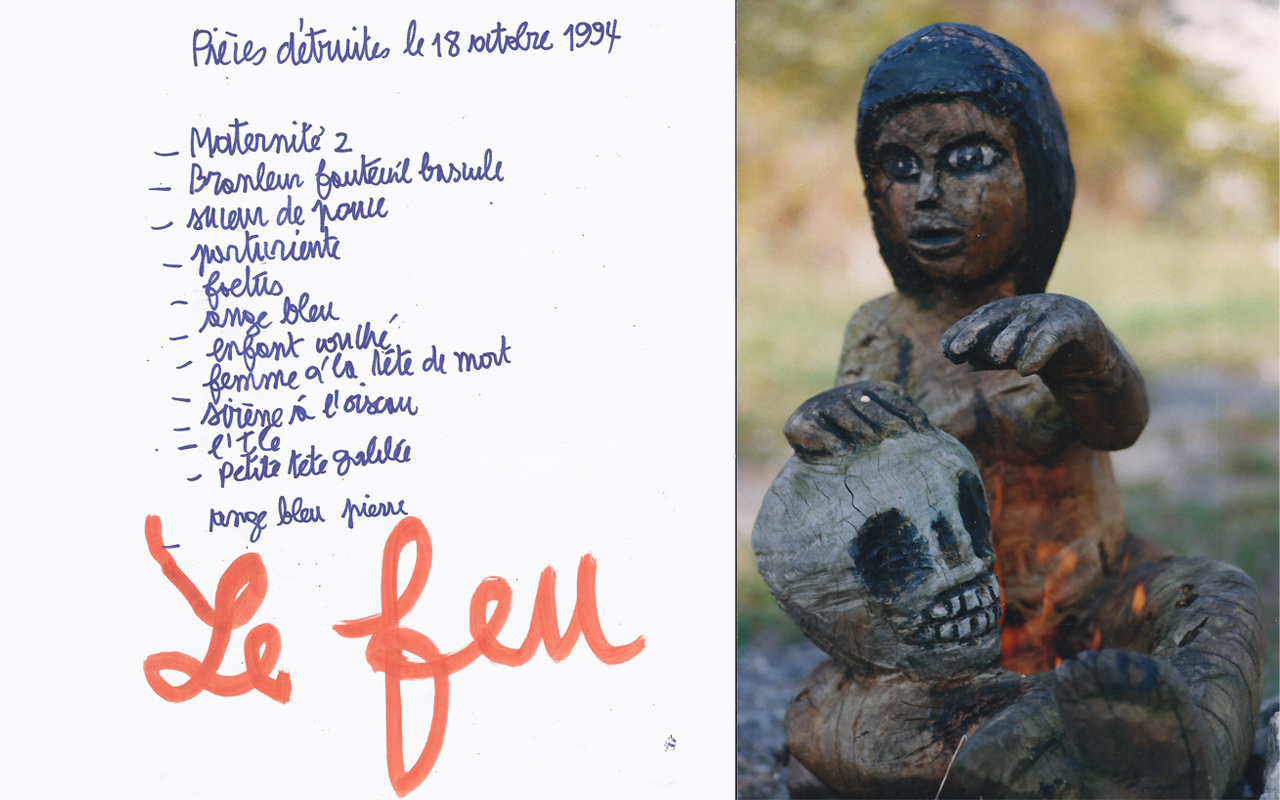 Pièces détruites le 18 octobre 1994
_ Maternité 2
_ Branleur fauteuil bascule
_ suceur de pouce
_ parturiente
_ foetus
_ ange bleu
_ enfant couché
_ femme à la tête de mort
_ sirène à l'oiseau
_ l'île
_ Petite tête galilée
_ ange bleu pierre
Le feu